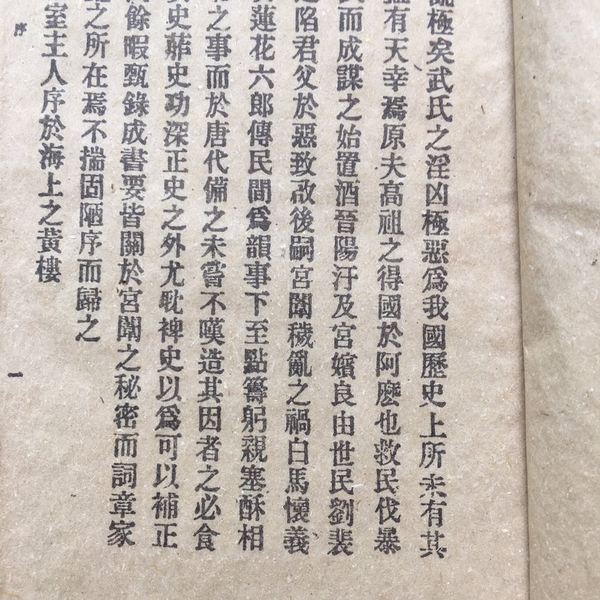 極矣武氏之淫凶極惡爲我國歷史上所未有其
有天幸焉原夫高祖之得國於阿麽也救民伐暴
而成謀之始置酒晉陽汙及宮嬪良由世民劉裴
陷君父於惡致啟後嗣宮闈穢亂之禍白馬懷義
蓮花六郎傳民間爲韻事下至點籌躬親塞酥相
之事而於唐代備之未嘗不嘆造其因者之必食
史莊史功深正史之外尤耽裨史以爲可以補正
餘暇甄錄成書要皆關於宮闈之秘密而詞章家
之所在焉不揣固陋序而歸之
室主人序於海上之黃樓
序
一